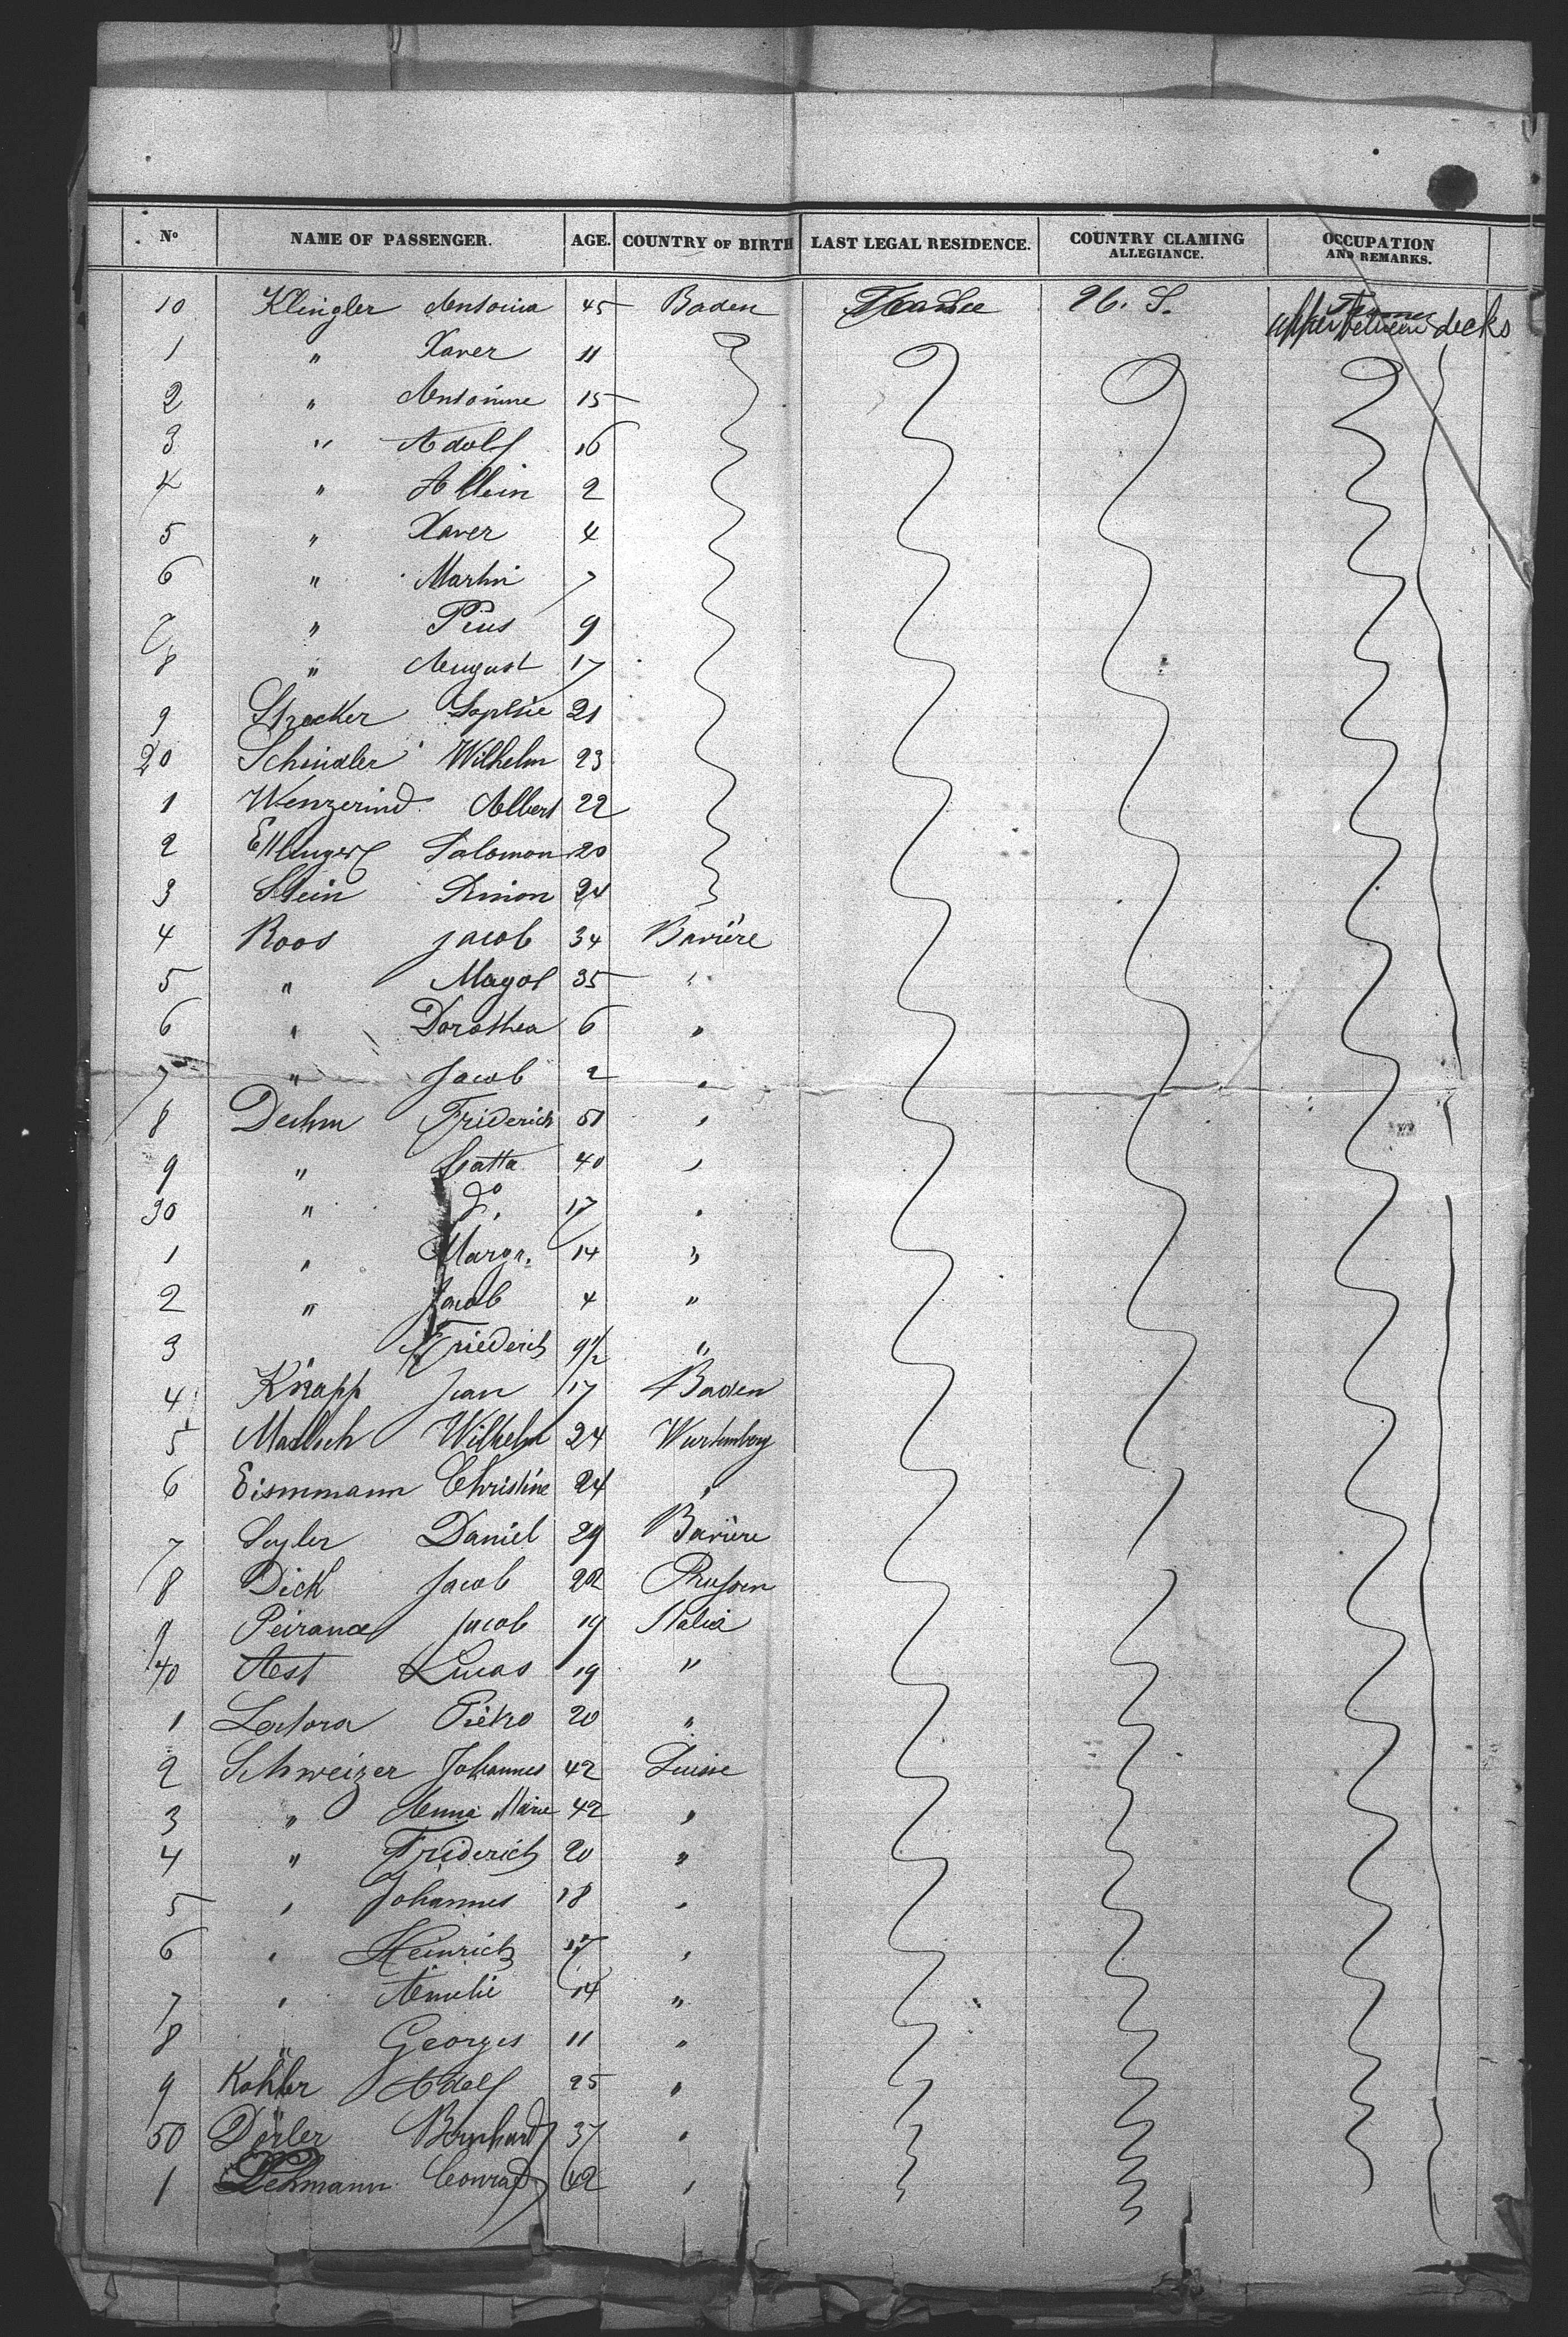 No NAME OF PASSENGER. AGE. COUNTRY OF BIRTH LAST LEGAL RESIDENCE. COUNTRY CLAMING ALLEGIANCE. OCCUPATION AND REMARKS.
10 Klingler Antonia 45 Baden S. upper between decks
1 " Xaver 11
2 " Antonine 15
3 " Adolf 16
4 " Albin 2
5 " Xaver 4
6 " Martin 7
7 " Pius 9
8 " August 17
9 Strecker Sophie 21
20 Schindler Wilhelm 23
1 Wenzerind Albert 22
2 Ettlinger Salomon 20
3 Stein 24
4 Roos Jacob 34 Bavière
5 " 35 "
6 " Dorothea 6 "
7 " Jacob 2 "
8 Dechm Friderich 51 "
9 " 40 "
30 " do. 17 "
1 " Margr. 14 "
2 " Jacob 4 "
3 " Friederich 9 1/2 "
4 Knapp Jean 17 Baden
5 Wilhelm 24 Wurtemberg
6 Eismmann Christine 24 "
7 Seyler Daniel 29 Bavière
8 Dick Jacob 22 Prussen
9 Jacob 19 Italia
40 Lucas 19 "
1 Pietro 20 "
2 Schweizer Johannes 42 Suisse
3 " Anna Marie 42 "
4 " Friderich 20 "
5 " Johannes 18 "
6 " Heinrich 17 "
7 " Amelie 14 "
8 " Georges 11 "
9 Kohler Adolf 25 "
50 Dörler Bernhard 37 "
1 Lehmann Conrad 42 "